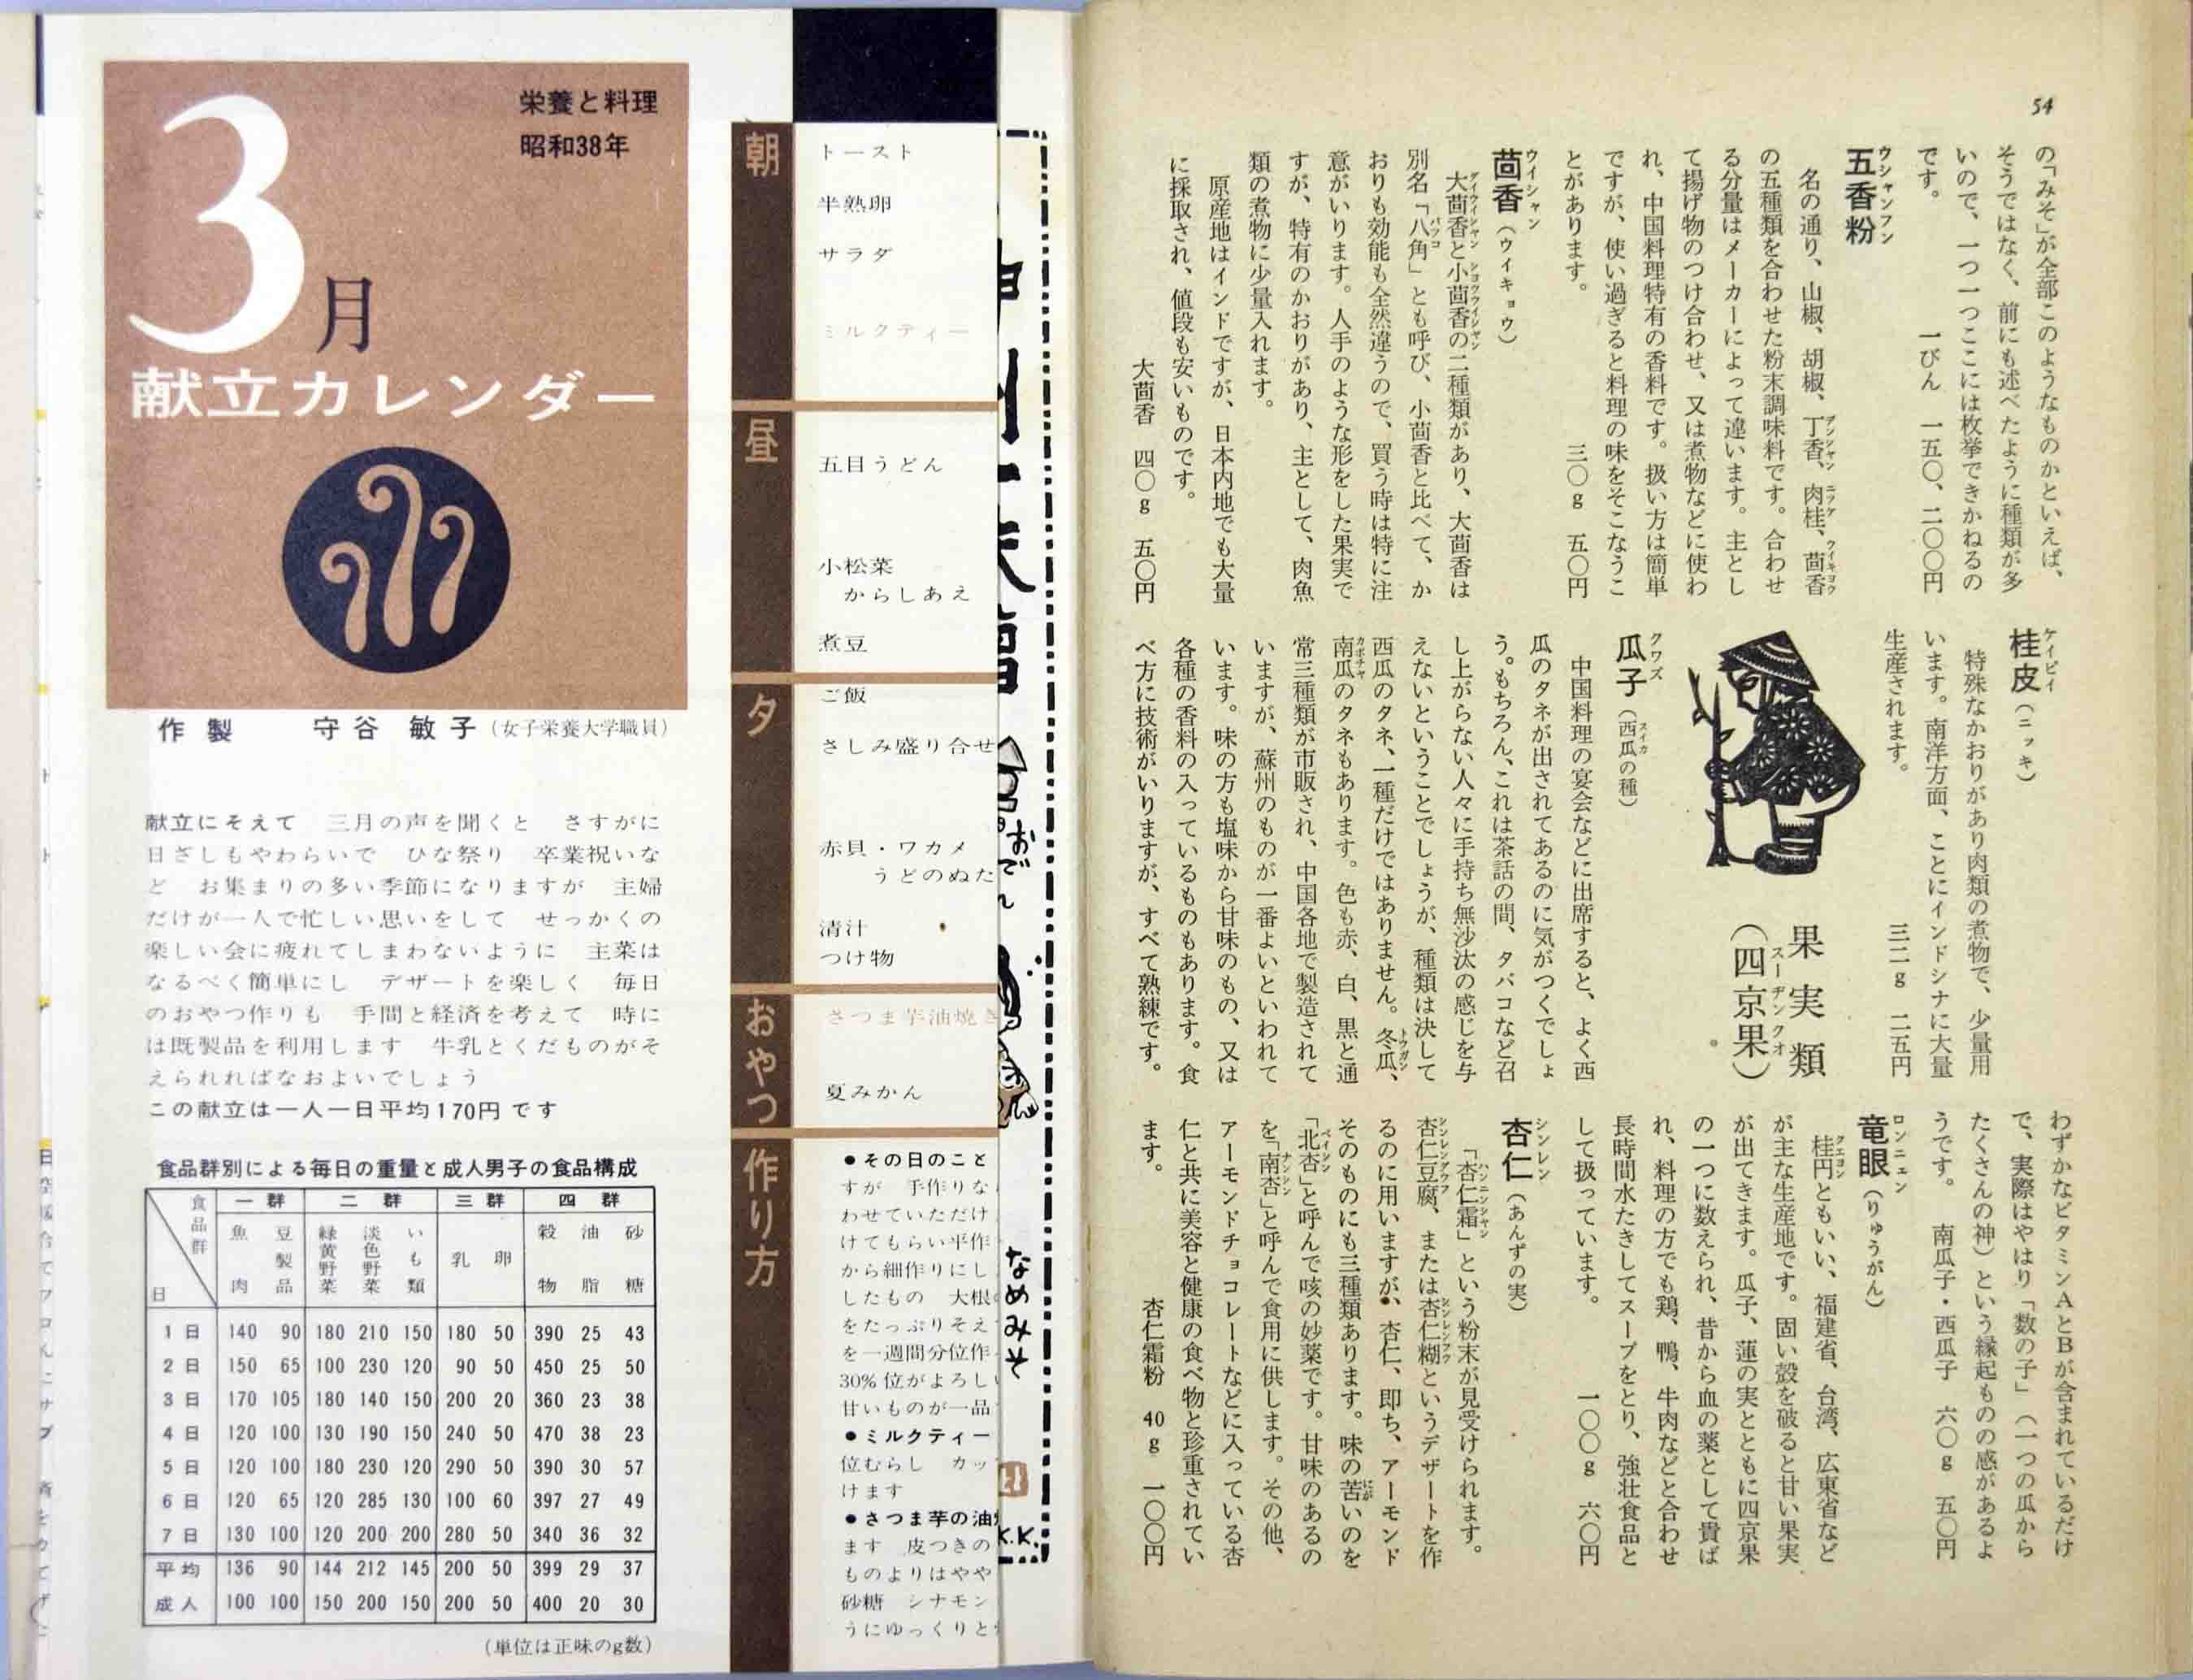 栄養と料理
昭和38年
3月
献立カレンダー
作製　守谷　敏子（女子栄養大学職員）
献立にそえて　三月の声を聞くと　さすがに
日ざしもやわらいで　ひな祭り　卒業祝いな
ど　お集まりの多い季節になりますが　主婦
だけが一人で忙しい思いをして　せっかくの
楽しい会に疲れてしまわないように　主菜は
なるべく簡単にし　デザートを楽しく　毎日
のおやつ作りも　手間と経済を考えて　時に
は既製品を利用します　牛乳とくだものがそ
えられればなおよいでしょう
この献立は一人一日平均170円です
食品群別による毎日の重量と成人男子の食品構成
食品群　一群　二群　三群　四群
日　魚肉　豆製品　緑黄野菜　淡色野菜　いも類　乳　卵　穀物　油脂　砂糖
1日 140 90 180 210 150 180 50 390 25 43
2日 150 65 100 230 120 90 50 450 25 50
3日 170 105 180 140 150 200 20 360 23 38
4日 120 100 130 190 150 240 50 470 38 23
5日 120 100 180 230 120 290 50 390 30 57
6日 120 65 120 285 130 100 60 397 27 49
7日 130 100 120 200 200 280 50 340 36 32
平均 136 90 144 212 145 200 50 399 29 37
成人 100 100 150 200 150 200 50 400 20 30
（単位は正味のg数）
朝
トースト
半熟卵
サラダ
ミルクティー
昼
五目うどん
小松菜
からしあえ
煮豆
夕
ご飯
さしみ盛り合せ
赤貝・ワカメ
うどのぬた
清汁
つけ物
おやつ
さつま芋油焼き
夏みかん
作り方
●その日のこと
すが　手作りな
わせていただけ
けてもらい平作
から細作りにし
したもの　大根
をたっぷりそえ
を一週間分位作
30%位がよろし
甘いものが一品
●ミルクティー
位むらし　カッ
けます
●さつま芋の油
ます　皮つきの
ものよりはやや
砂糖　シナモン
うにゆっくりと
おでん
なめみそ
K.K.
54
の「みそ」が全部このようなものかといえば、
そうではなく、前にも述べたように種類が多
いので、一つ一つここには枚挙できかねるの
です。　一びん　一五〇、二〇〇円
五香粉
ウシャンフン
名の通り、山椒、胡椒、丁香、肉桂、茴香
の五種類を合わせた粉末調味料です。合わせ
る分量はメーカーによって違います。主とし
て揚げ物のつけ合わせ、又は煮物などに使わ
れ、中国料理特有の香料です。扱い方は簡単
ですが、使い過ぎると料理の味をそこなうこ
とがあります。　三〇g　五〇円
茴香（ウイキョウ）
ウイシャン
大茴香と小茴香の二種類があり、大茴香は
別名「八角」とも呼び、小茴香と比べて、か
おりも効能も全然違うので、買う時は特に注
意がいります。人手のような形をした果実で
すが、特有のかおりがあり、主として、肉魚
類の煮物に少量入れます。
原産地はインドですが、日本内地でも大量
に採取され、値段も安いものです。
大茴香　四〇g　五〇円
桂皮（ニッキ）
ケイピイ
特殊なかおりがあり肉類の煮物で、少量用
います。南洋方面、ことにインドシナに大量
生産されます。　三二g　二五円
果実類
（四京果）
スーヂンクオ
瓜子（西瓜の種）
クワズ
中国料理の宴会などに出席すると、よく西
瓜のタネが出されてあるのに気がつくでしょ
う。もちろん、これは茶話の間、タバコなど召
し上がらない人々に手持ち無沙汰の感じを与
えないということでしょうが、種類は決して
西瓜のタネ、一種だけではありません。冬瓜、
南瓜のタネもあります。色も赤、白、黒と通
常三種類が市販され、中国各地で製造されて
いますが、蘇州のものが一番よいといわれて
います。味の方も塩味から甘味のもの、又は
各種の香料の入っているものもあります。食
べ方に技術がいりますが、すべて熟練です。
わずかなビタミンAとBが含まれているだけ
で、実際はやはり「数の子」（一つの瓜から
たくさんの神）という縁起ものの感があるよ
うです。　南瓜子・西瓜子　六〇g　五〇円
竜眼（りゅうがん）
ロンニェン
桂円ともいい、福建省、台湾、広東省など
が主な生産地です。固い殻を破ると甘い果実
が出てきます。瓜子、蓮の実とともに四京果
の一つに数えられ、昔から血の薬として貴ば
れ、料理の方でも鶏、鴨、牛肉などと合わせ
長時間水たきしてスープをとり、強壮食品と
して扱っています。　一〇〇g　六〇円
杏仁（あんずの実）
シンレン
「杏仁霜」という粉末が見受けられます。
杏仁豆腐、または杏仁糊というデザートを作
るのに用いますが、杏仁、即ち、アーモンド
そのものにも三種類あります。味の苦いのを
「北杏」と呼んで咳の妙薬です。甘味のあるの
を「南杏」と呼んで食用に供します。その他、
アーモンドチョコレートなどに入っている杏
仁と共に美容と健康の食べ物と珍重されてい
ます。　杏仁霜粉　40g　一〇〇円